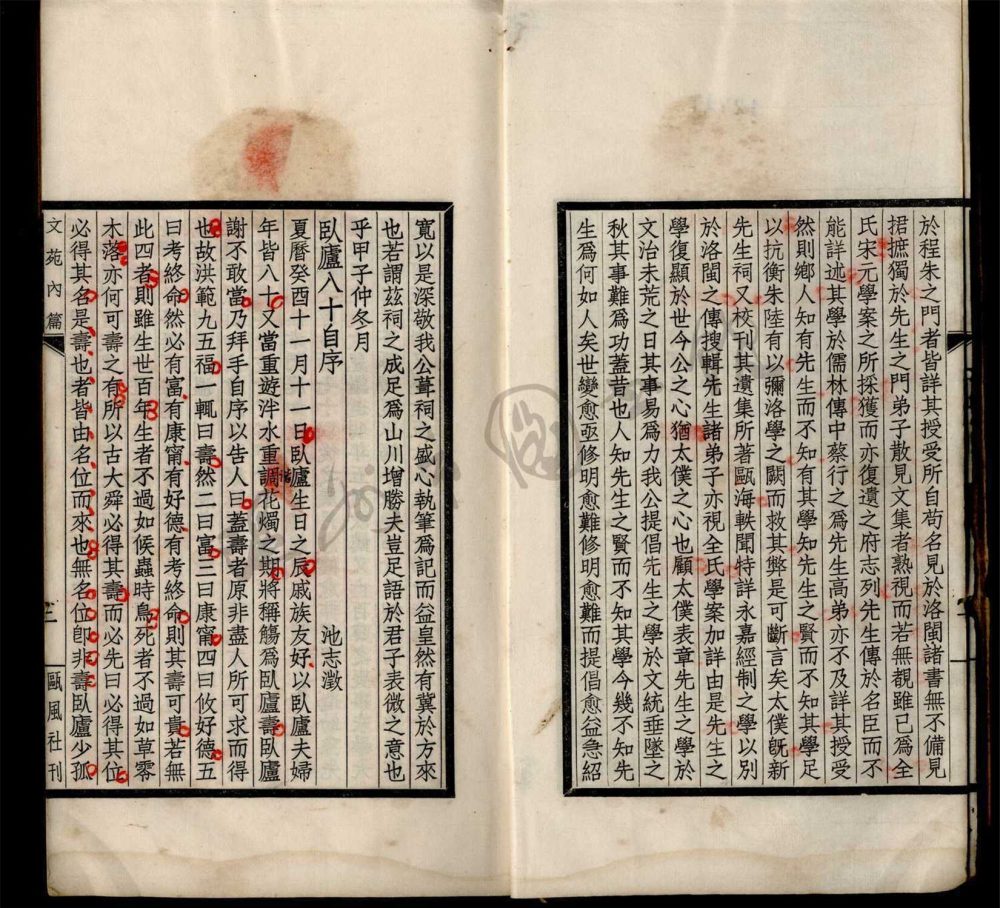 於程朱之門者皆詳其授受所自苟名見於洛閩諸書無不備見
捃摭獨於先生之門弟子散見文集者熟視而若無覩雖已爲全
氏宋元學案之所採獲而亦復遺之府志列先生傳於名臣而不
能詳述其學於儒林傳中蔡行之爲先生高弟亦不及詳其授受
然則鄉人知有先生而不知有其學知先生之賢而不知其學足
以抗衡朱陸有以彌洛學之闕而救其弊是可斷言矣太僕旣新
先生祠又校刊其遺集所著甌海軼聞特詳永嘉經制之學以別
於洛閩之傳搜輯先生諸弟子亦視全氏學案加詳由是先生之
學復顯於世今公之心猶太僕之心也顧太僕表章先生之學於
文治未荒之日其事易爲力我公提倡先生之學於文統垂墜之
秋其事難爲功蓋昔也人知先生之賢而不知其學今幾不知先
生爲何如人矣世變愈亟修明愈難修明愈難而提倡愈益急紹
寬以是深敬我公葺祠之盛心執筆爲記而益皇然有冀於方來
也若謂茲祠之成足爲山川增勝夫豈足語於君子表微之意也
乎甲子仲冬月
臥廬八十自序
池志澂
夏曆癸酉十一月十一日臥廬生日之辰戚族友好以臥廬夫婦
年皆八十又當重遊泮水重諧花燭之期將稱觴爲臥廬壽臥廬
謝不敢當乃拜手自序以告人曰蓋壽者原非盡人所可求而得
也故洪範九五福一輒曰壽然二曰富三曰康甯四曰攸好德五
曰考終命然必有富有康甯有好德有考終命則其壽可貴若無
此四者則雖生世百年生者不過如候蟲時鳥死者不過如草零
木落亦何可壽之有所以古大舜必得其壽而必先曰必得其位
必得其名是壽也者皆由名位而來也無名位卽非壽臥廬少孤
文苑內篇
二
甌風社刊